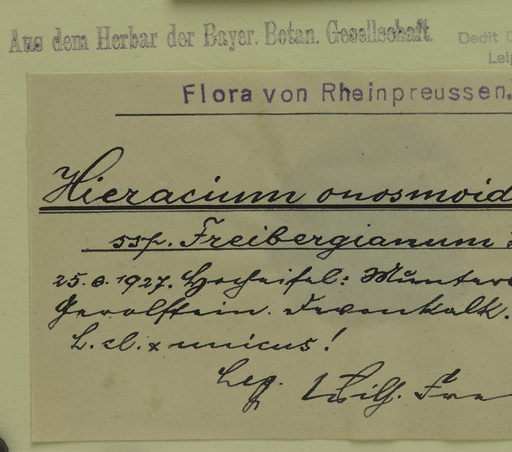 Aus dem Herbar der Bayer. Botan. Gesellschaft.
Dedit
Leip
Flora von Rheinpreussen.
Hieracium onosmoid
ssp. Freibergianum
25.6.1927. Hocheifel: Munter
Gerolstein. Devonkalk.
L. cl. unicus!
Leg. Wilh. Fre